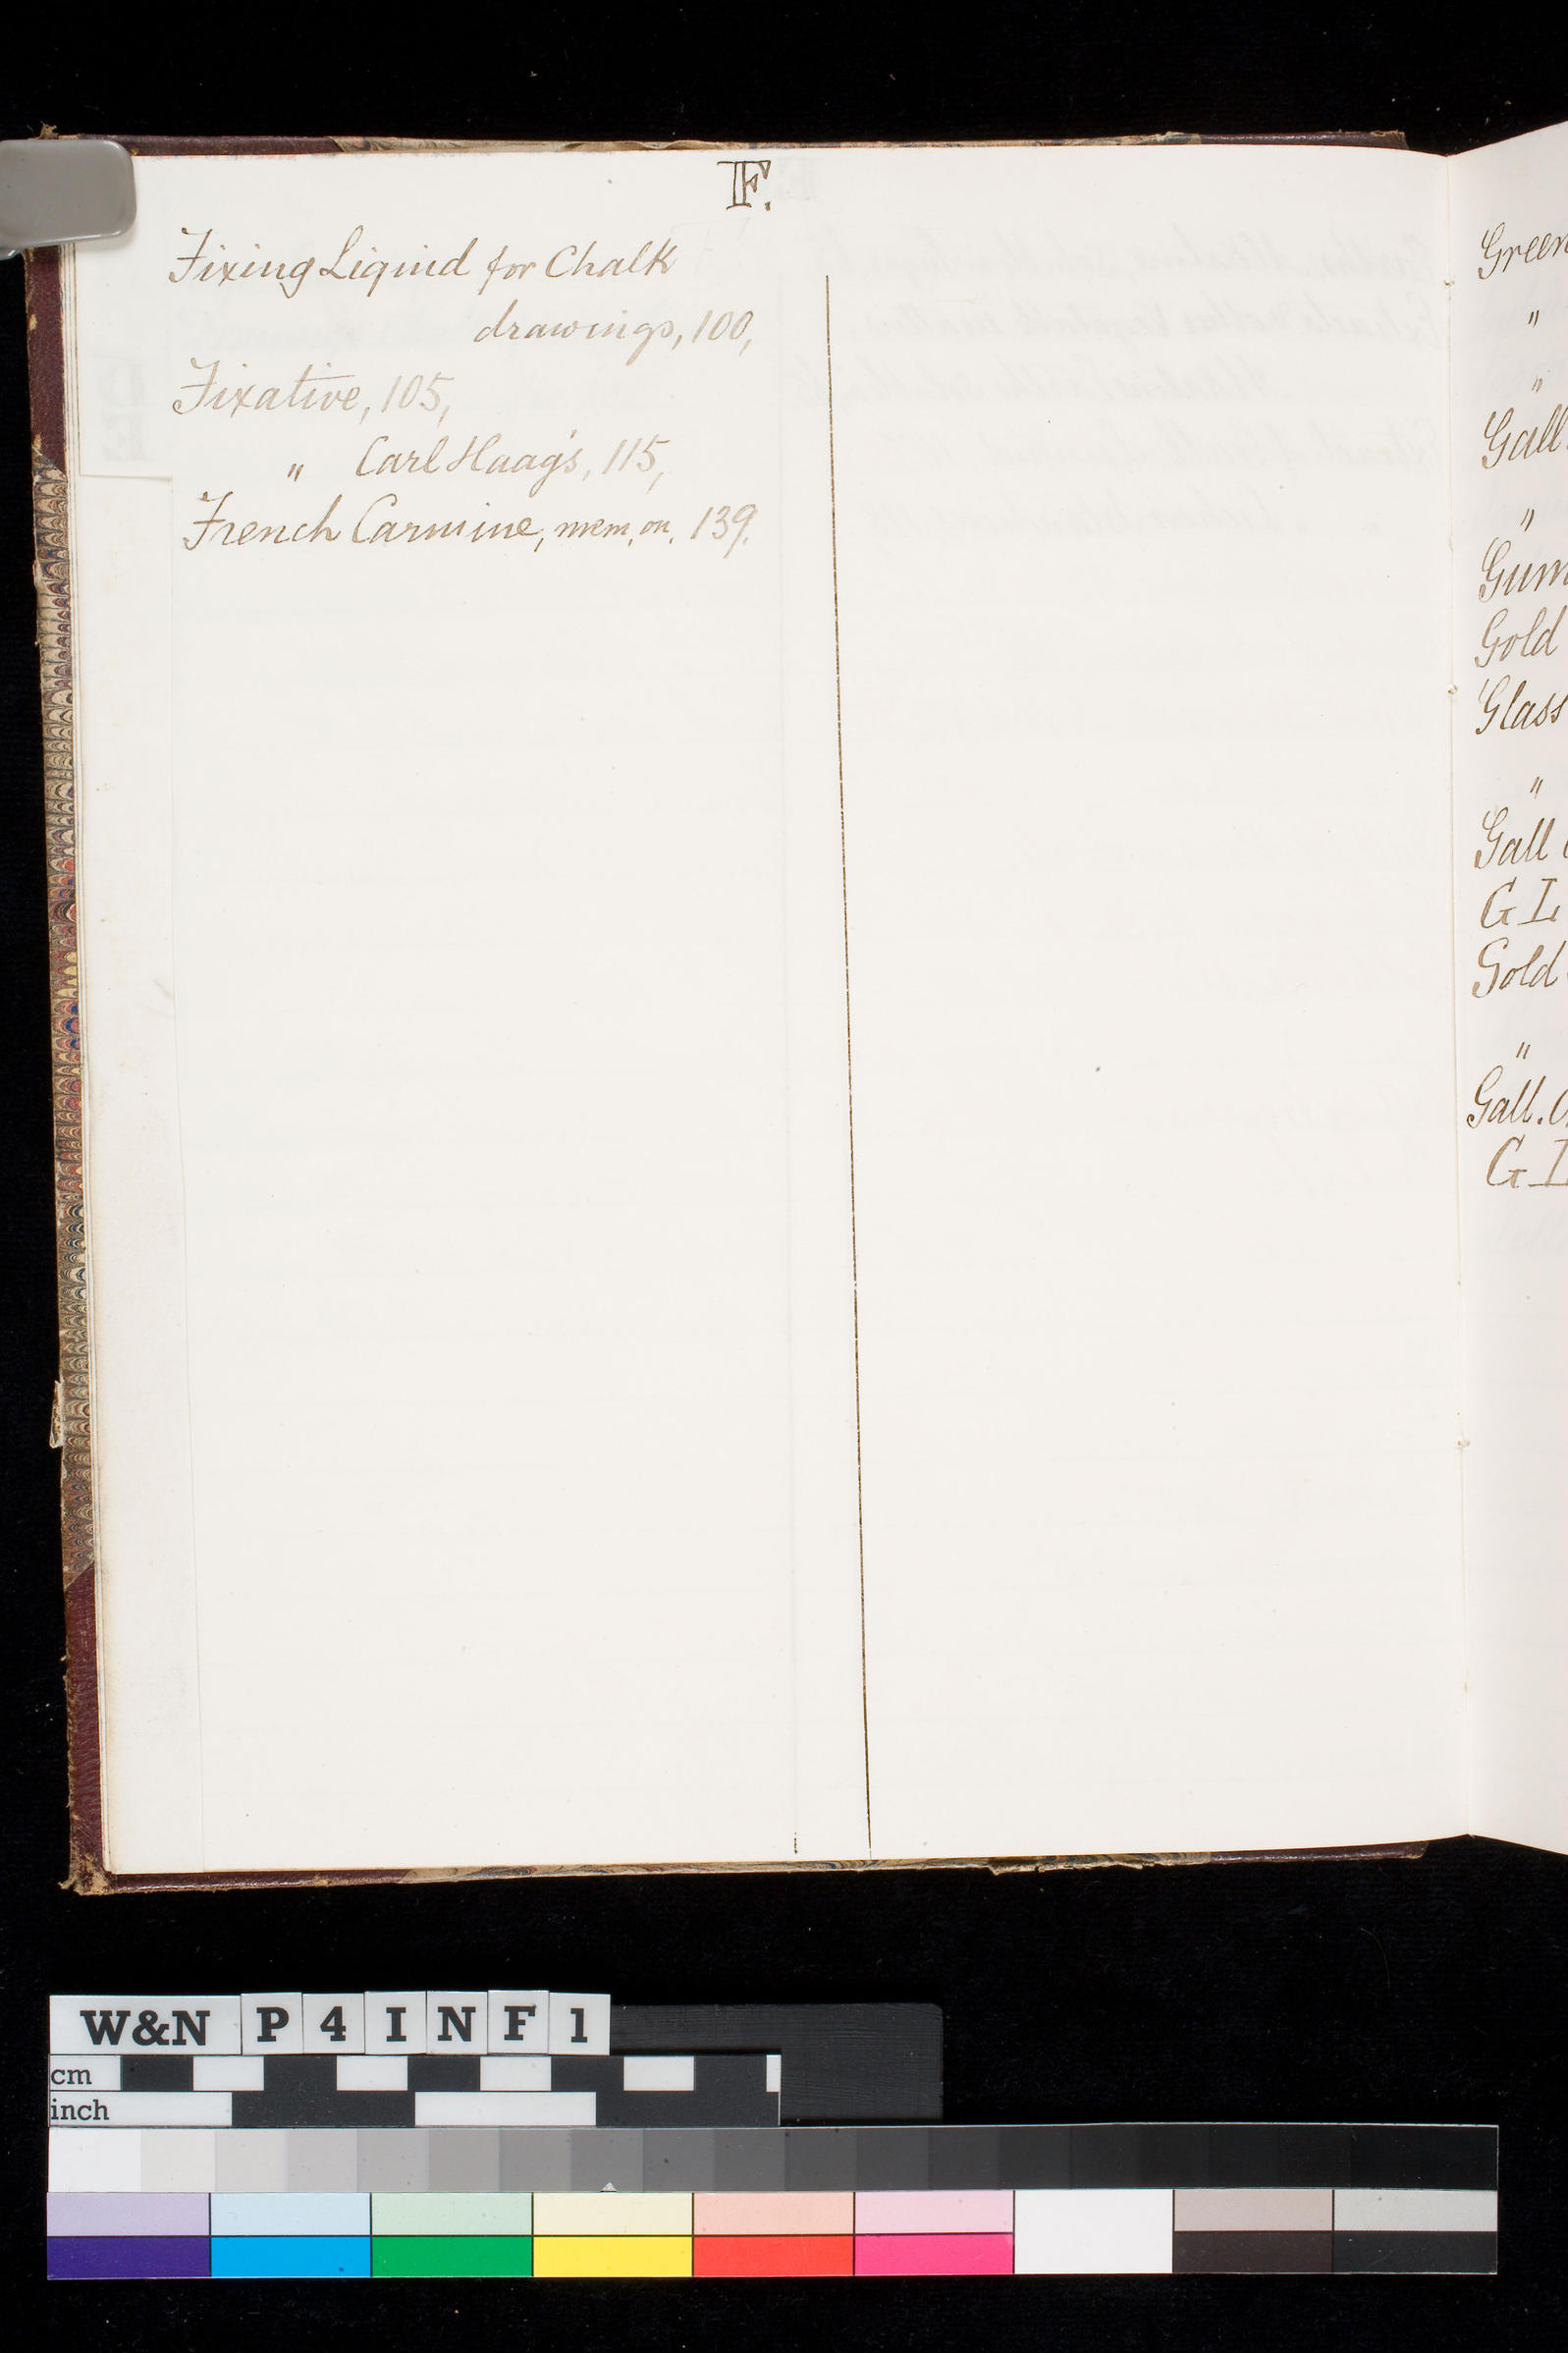 F.
Fixing Liquid for Chalk
drawings, 100,
Fixative, 105,
" Carl Haag's, 115,
French Carmine, mem, on, 139.
Green
"
"
Gall
"
Gum
Gold
Glass
"
Gall
G L
Gold
"
Gall.
G L
W&N P 4 I N F 1
cm
inch